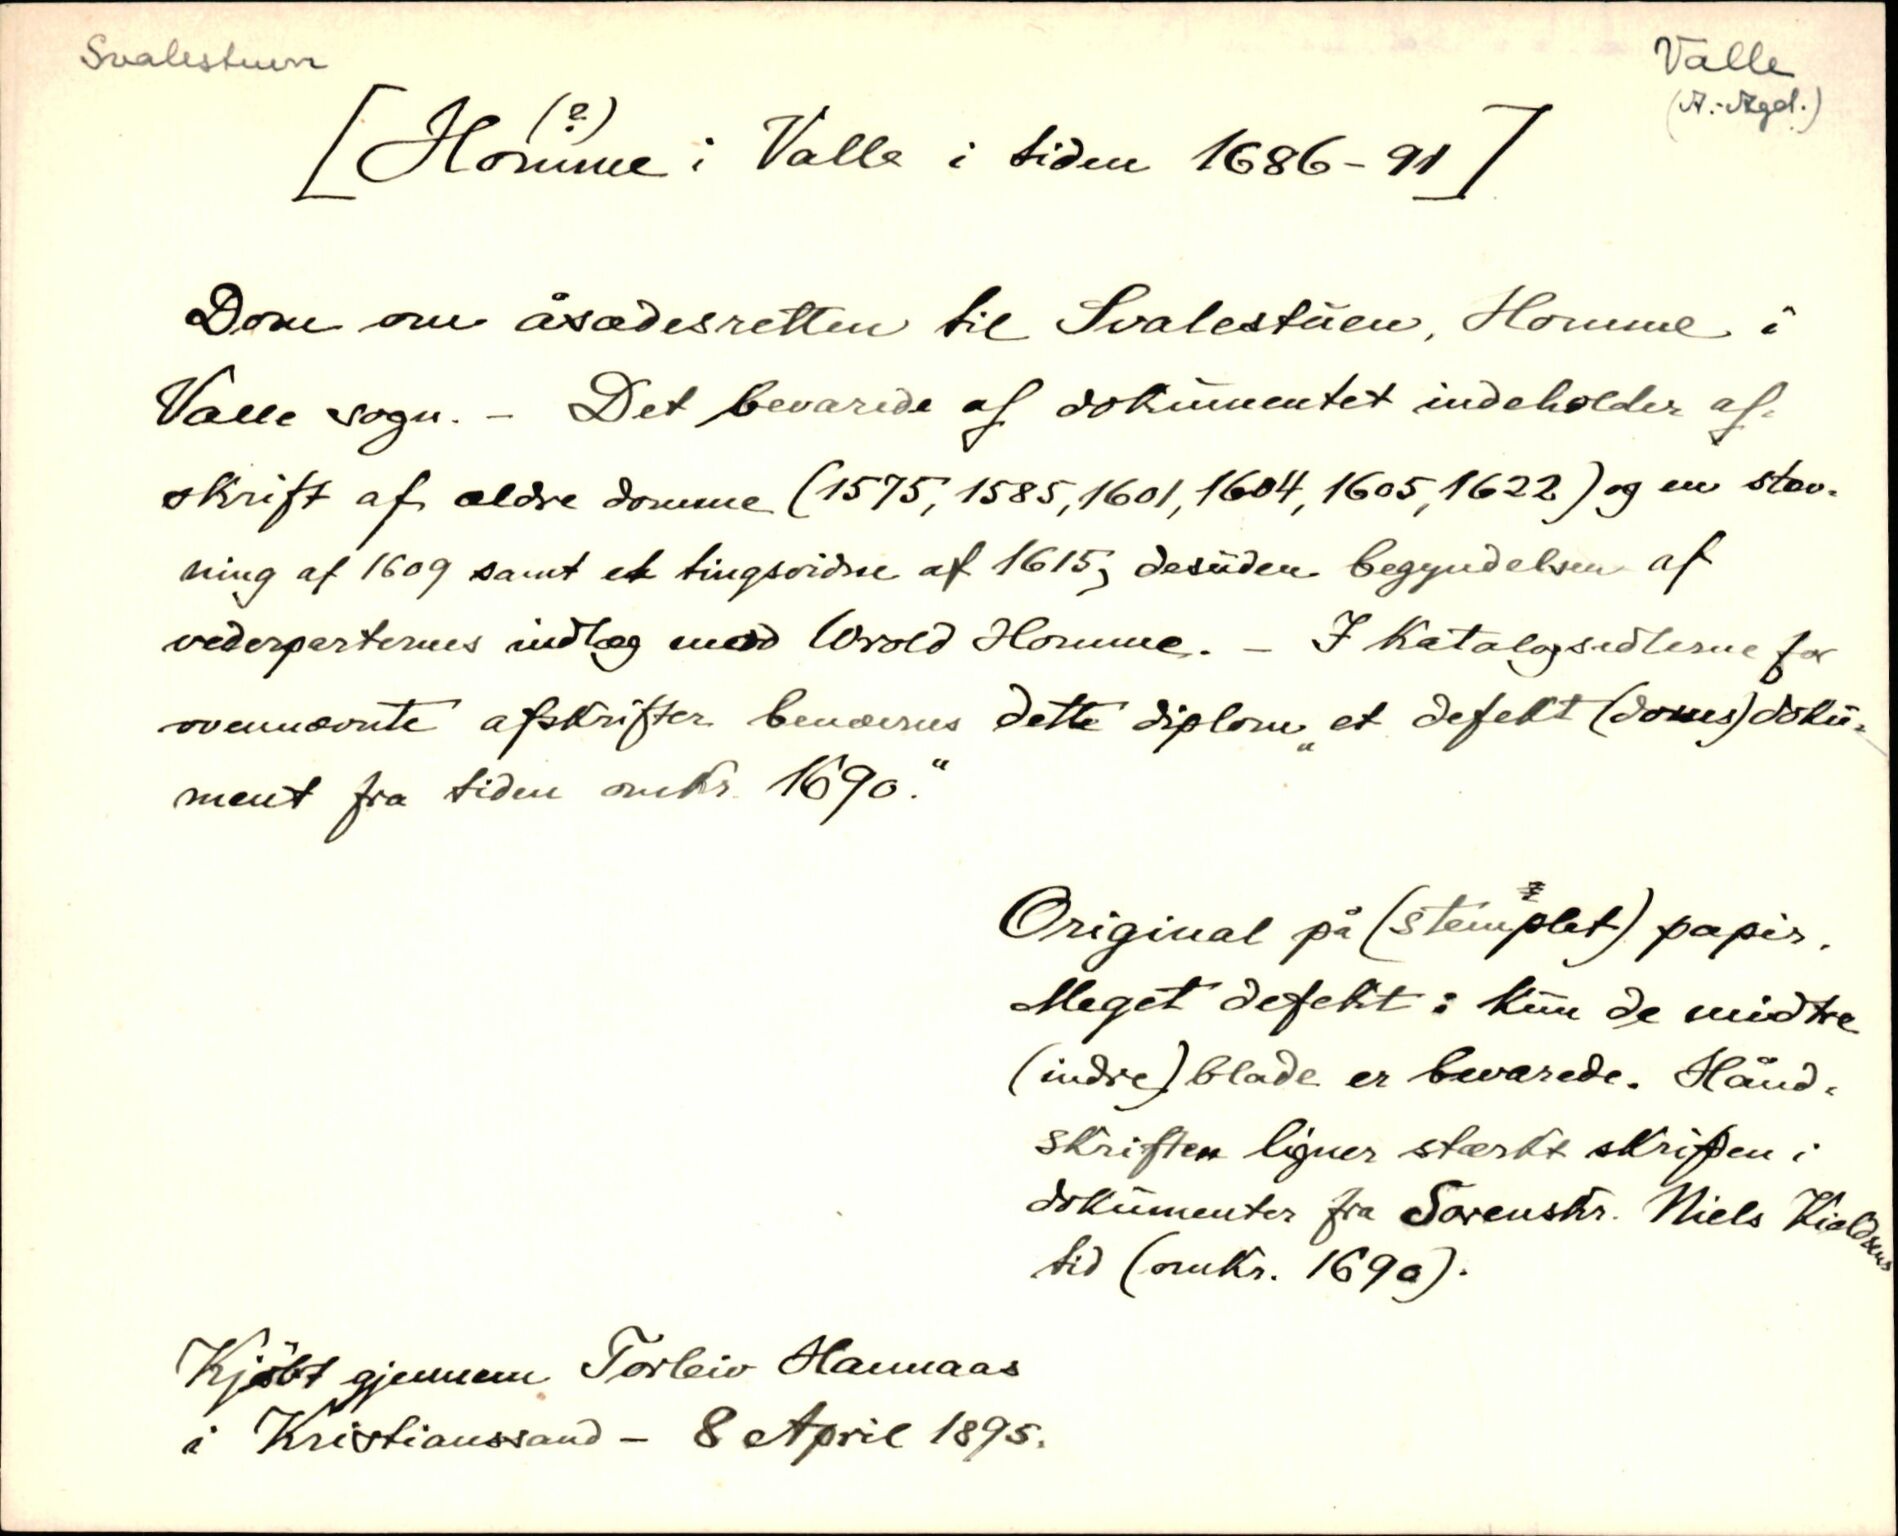 Svalestuen
Valle
(A.-Agd.)
[Homme (?) i Valle i tiden 1686-91]
Dom om åsædesretten til Svalestuen, Homme i
Valle sogn. - Det bevarede af dokumentet indeholder af-
skrift af ældre domme (1575, 1585, 1601, 1604, 1605, 1622) og en stev-
ning af 1609 samt et tingsvidne af 1615; desuden begyndelsen af
vederparternes indlæg mod Orvold Homme. - I katalogsedlerne for
ovennævnte afskrifter benævnes dette diplom „et defekt (doms)doku-
ment fra tiden omkr. 1690."
Original på (stemplet) papir.
Meget defekt: kun de midtre
(indre) blade er bevarede. Hånd-
skriften ligner stærkt skriften i
dokumenter fra Sorenskr. Niels Kieldsens
tid (omkr. 1690).
Kjöbt gjennem Torleiv Hannaas
i Kristianssand - 8 April 1895.